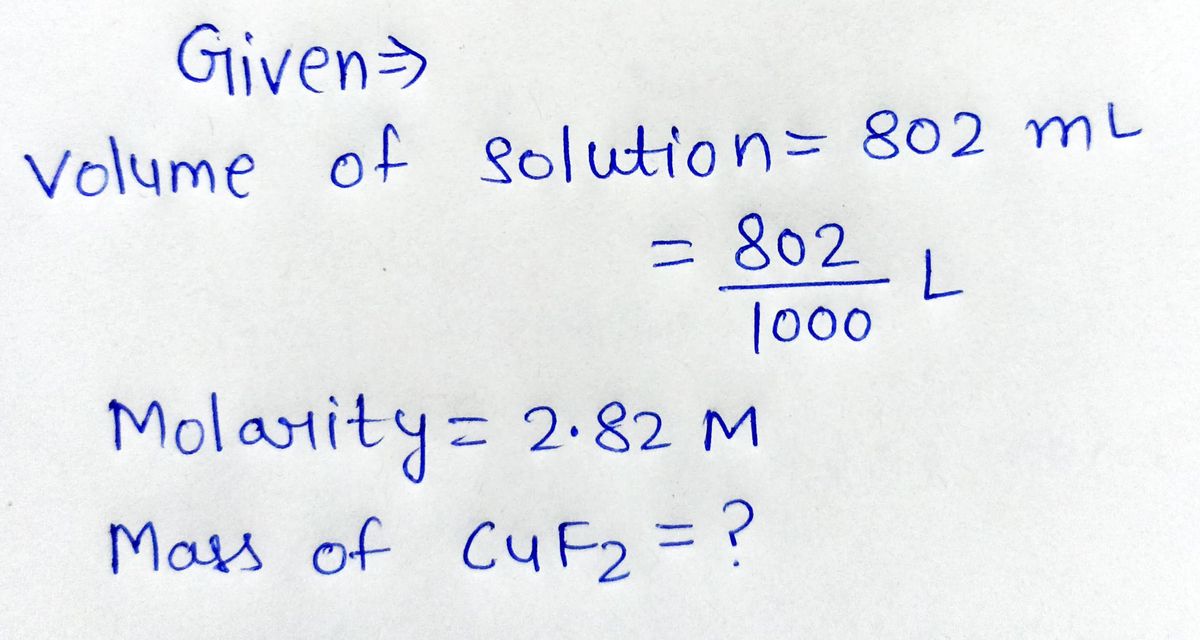 Given⇒
Volume of solution = 802 mL
= 802/1000 L
Molarity = 2.82 M
Mass of CuF₂ = ?